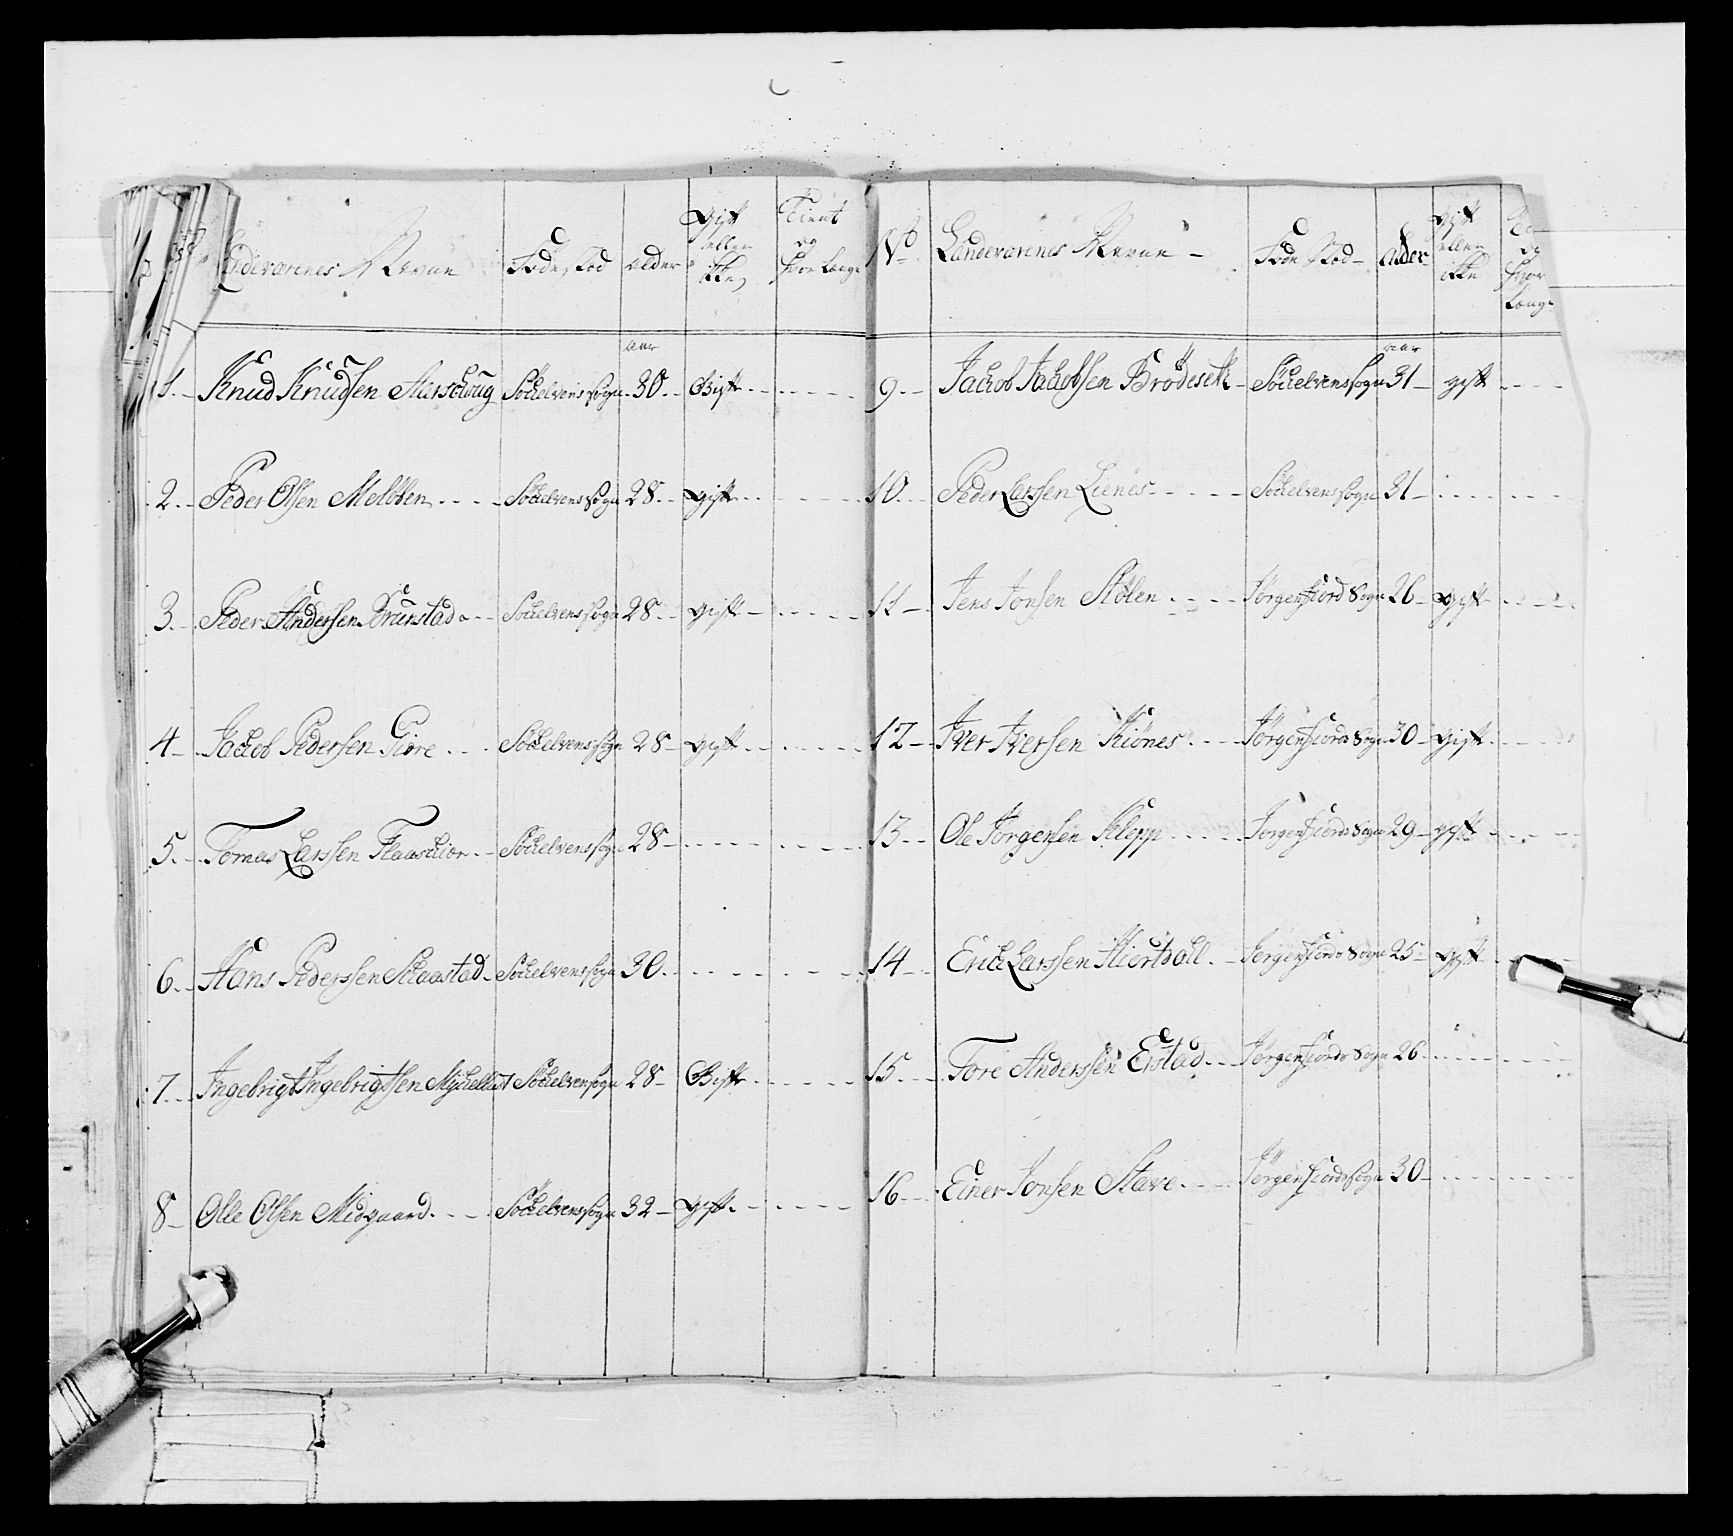 Landeværnes Navne | Føde Stæd | alder | Gift eller ikke | Tient og hvor Længe
aar
1. Knud Knudsen Aarschoug | Söckelvens sogn | 30 | Gift
2. Peder Olsen Melbben | Söckelvens Sogn | 28 | gift
3. Peder Anderssen Brunstad | Söckelvens sogn | 28 | gift
4 Jacob Pederssen Giöre | Söckelvens sogn | 28 | gift
5. Tomas Larssen | Söckelvens sogn | 28
6. Hans Pederssen | Söckelvens sogn | 30
7. Ingebrigt Ingebrigtsen Mycklebust | Söckelvens sogn | 28 | Gift
8 Olle Olsen Midgaard | Söckelvens sogn | 32 | gift
No | Landeværnes Navne | Føde Stæd | Alder | gift eller ikke | og hvor Længe
aar
9. Jacob Jacobsen Brödesett | Söckelvens sogn | 31 | gift
10. Peder Larssen Lienes | Söckelvens sogn | 31
11 Jens Jonsen Stölen | Jörgenfiord Sogn | 26 | gift
12 Iver Iversen Kiönes | Jörgenfiords Sogn | 30 | gift
13 Ole Jörgensen Klepp | Jörgenfiords Sogn | 29 | gift
14 Erick Larssen Hiortdall | Jörgenfiords Sogn | 25 | gift
15 Tore Anderssen Erstad | Jörgenfiords Sogn | 26
16 Einer Jonsen Stave | Jörgenfiords sogn | 30